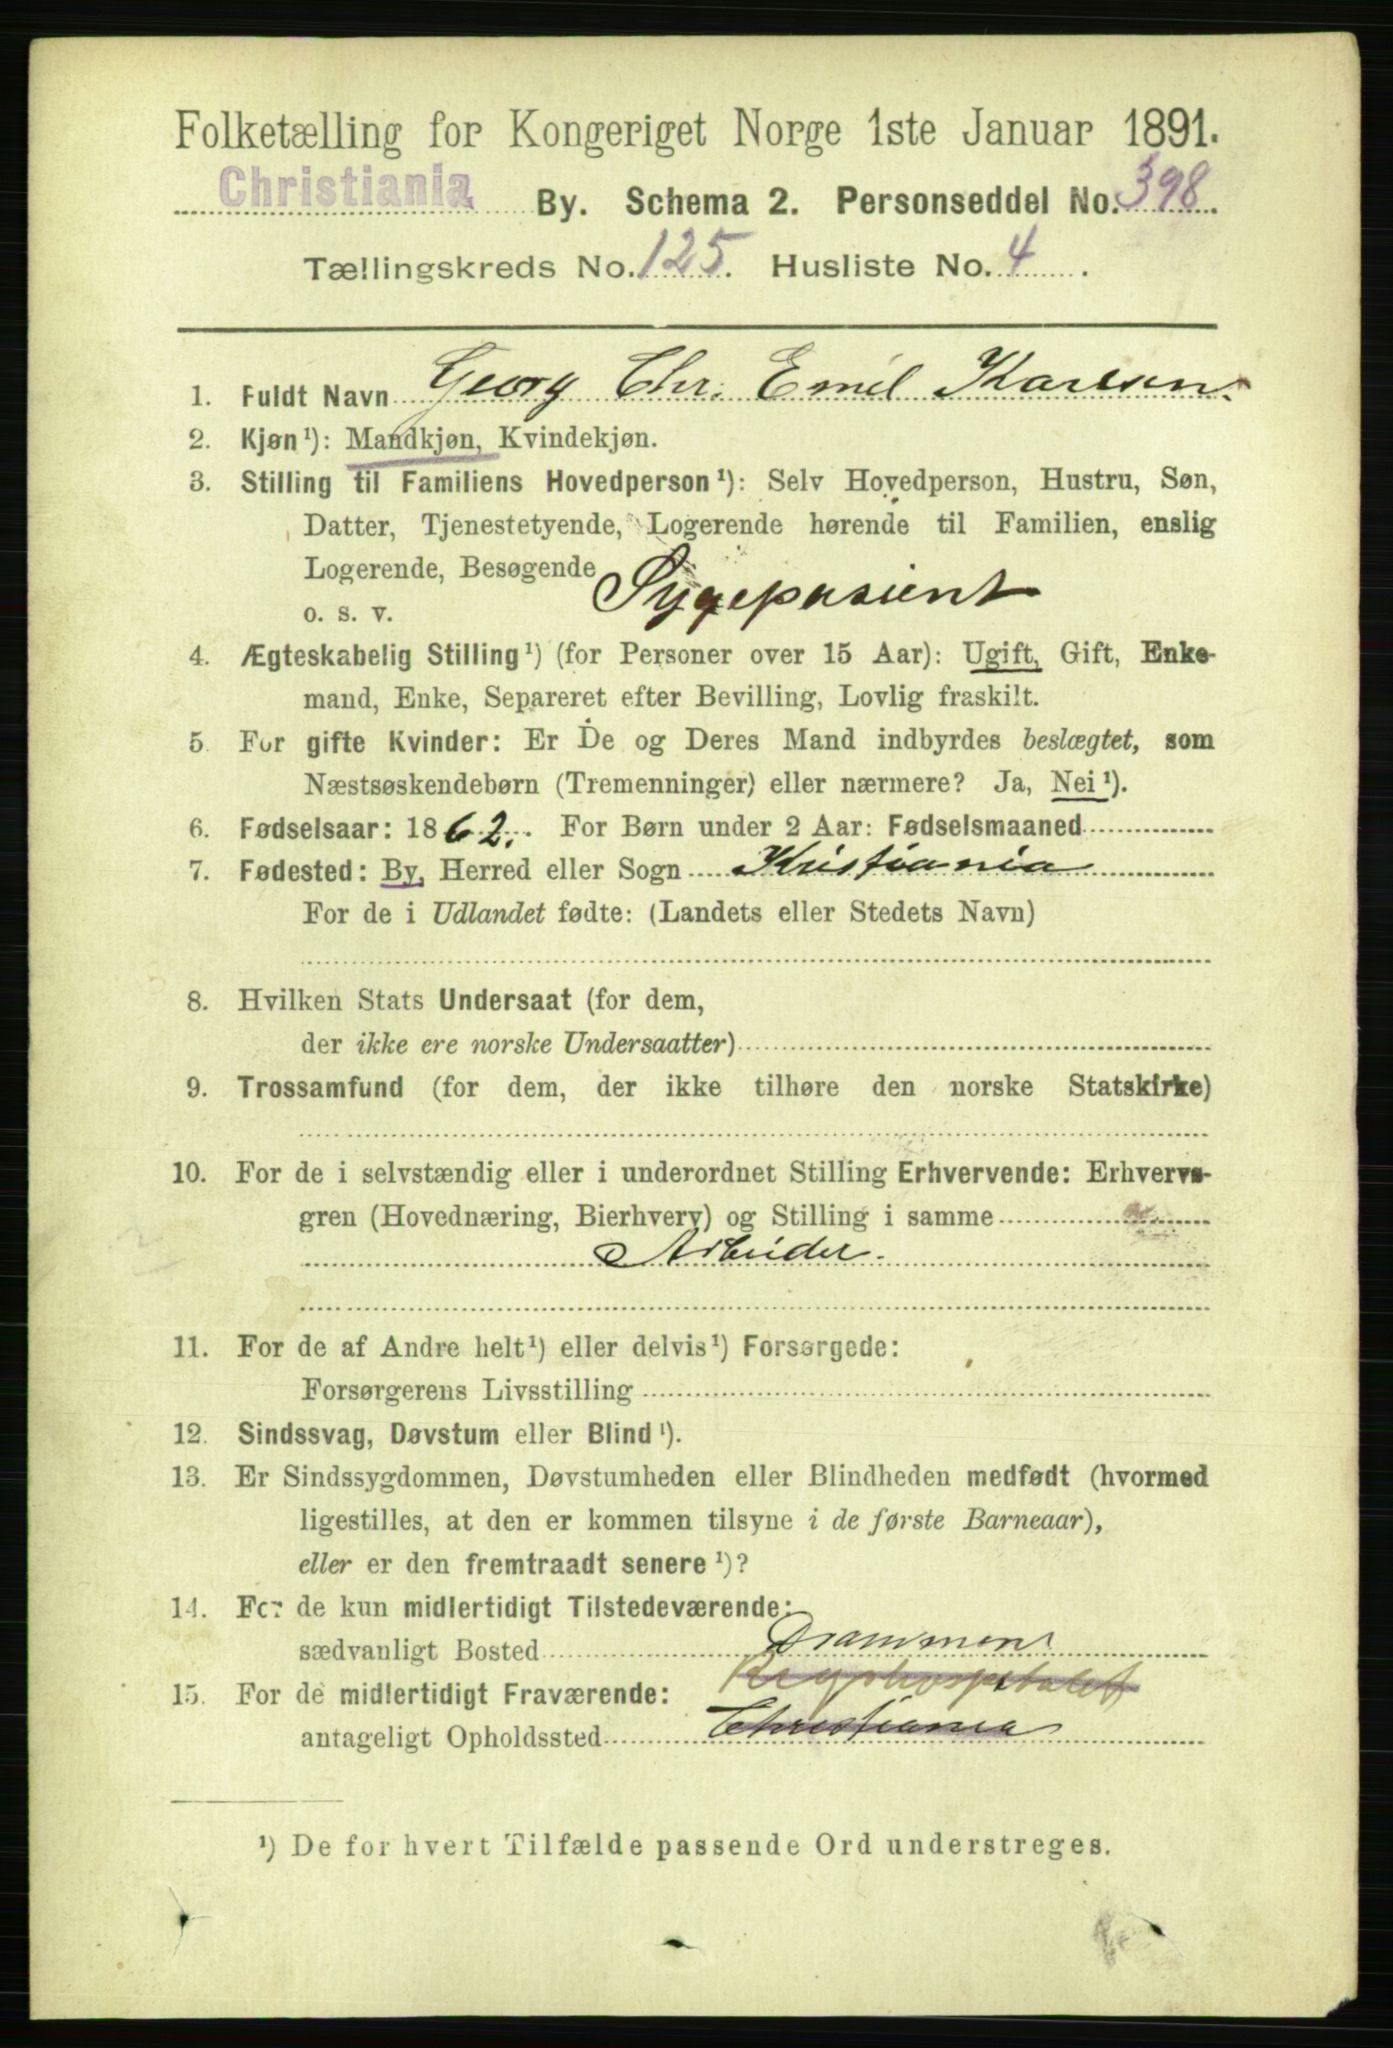 Folketælling for Kongeriget Norge 1ste Januar 1891.
Christiania By. Schema 2. Personseddel No. 398.
Tællingskreds No. 125. Husliste No. 4.
1. Fuldt Navn Georg Chr. Emil Karlsen.
2. Kjøn ¹): Mandkjøn, Kvindekjøn.
3. Stilling til Familiens Hovedperson ¹): Selv Hovedperson, Hustru, Søn,
Datter, Tjenestetyende, Logerende hørende til Familien, enslig
Logerende, Besøgende Sygepasient
o. s. v.
4. Ægteskabelig Stilling ¹) (for Personer over 15 Aar): Ugift, Gift, Enke-
mand, Enke, Separeret efter Bevilling, Lovlig fraskilt.
5. For gifte Kvinder: Er De og Deres Mand indbyrdes beslægtet, som
Næstsøskendebørn (Tremenninger) eller nærmere? Ja, Nei ¹).
6. Fødselsaar: 1862. For Børn under 2 Aar: Fødselsmaaned
7. Fødested: By, Herred eller Sogn Kristiania
For de i Udlandet fødte: (Landets eller Stedets Navn)
8. Hvilken Stats Undersaat (for dem,
der ikke ere norske Undersaatter)
9. Trossamfund (for dem, der ikke tilhøre den norske Statskirke)
10. For de i selvstændig eller i underordnet Stilling Erhvervende: Erhvervs-
gren (Hovednæring, Bierhverv) og Stilling i samme
Arbeider.
11. For de af Andre helt ¹) eller delvis ¹) Forsørgede:
Forsørgerens Livsstilling
12. Sindssvag, Døvstum eller Blind ¹).
13. Er Sindssygdommen, Døvstumheden eller Blindheden medfødt (hvormed
ligestilles, at den er kommen tilsyne i de første Barneaar),
eller er den fremtraadt senere ¹)?
14. For de kun midlertidigt Tilstedeværende:
sædvanligt Bosted Drammen
15. For de midlertidigt Fraværende:
antageligt Opholdssted Christiania
¹) De for hvert Tilfælde passende Ord understreges.